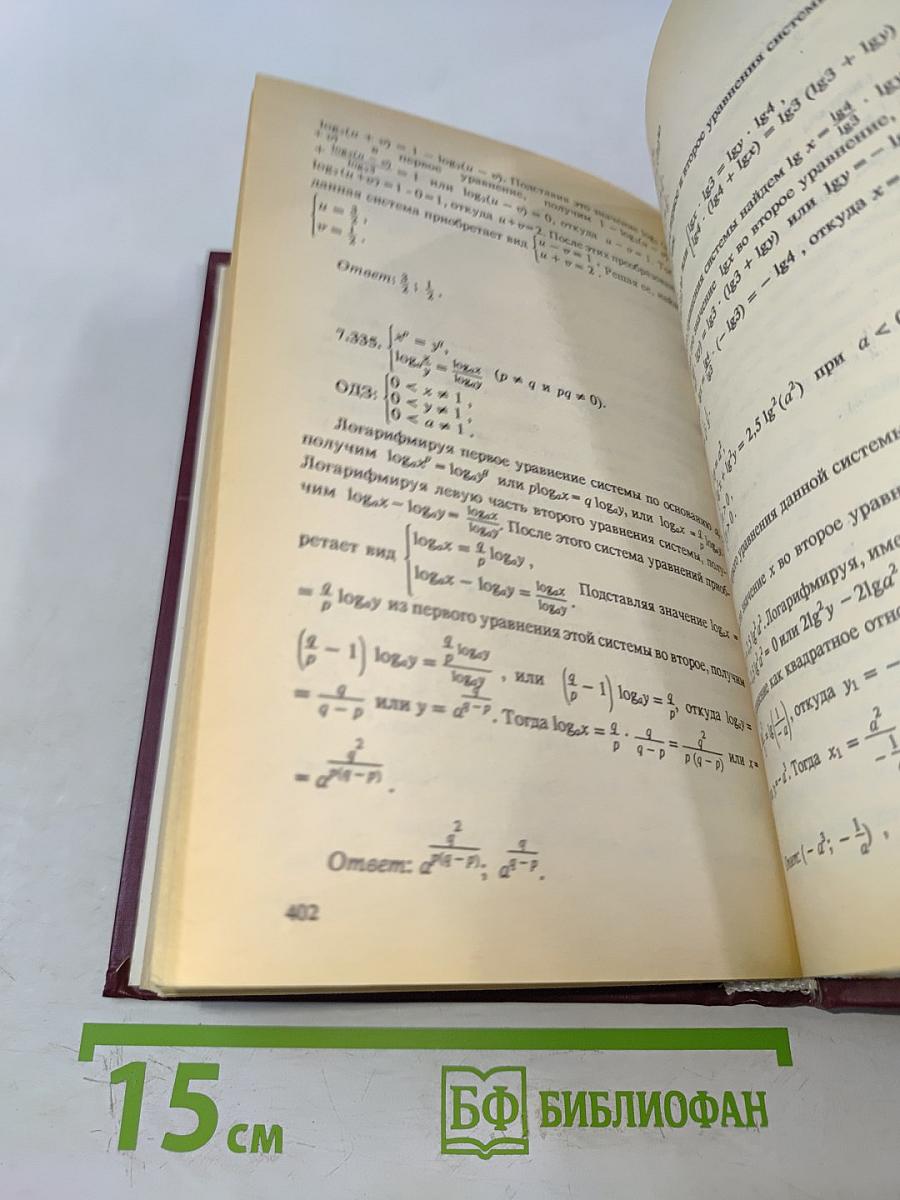 log₂(u + v) = 1 − log₂(u − v). Подставив это значение log₂(u +
+ v) в первое уравнение, получим 1 − log₂(u −
= 1 или log₂(u − v) = 0, откуда u − v = 1. Тог
log₂(u + v) = 1 - 0 = 1, откуда u + v = 2. После этих преобразований
данная система приобретает вид {u − v = 1, u + v = 2. Решая ее, найд
{u = 3/2,
v = 1/2,
Ответ: 3/2; 1/2.
7.335. {x^p = y^q,
log_a x/y = log_a x / log_a y (p ≠ q и pq ≠ 0).
ОДЗ: {0 < x ≠ 1,
0 < y ≠ 1,
0 < a ≠ 1.
Логарифмируя первое уравнение системы по основанию a,
получим log_a x^p = log_a y^q или plog_a x = q log_a y, или log_a x = q/p log_a y.
Логарифмируя левую часть второго уравнения системы, полу-
чим log_a x − log_a y = log_a x / log_a y. После этого система уравнений приоб-
ретает вид {log_a x = q/p log_a y,
log_a x − log_a y = log_a x / log_a y. Подставляя значение log_a x =
= q/p log_a y из первого уравнения этой системы во второе, получим
(q/p − 1) log_a y = (q/p log_a y) / log_a y, или (q/p − 1) log_a y = q/p, откуда log_a y =
= q/(q − p) или y = a^(q/(q−p)). Тогда log_a x = q/p · q/(q − p) = q²/(p(q − p)) или x =
= a^(q²/(p(q−p))).
Ответ: a^(q²/(p(q−p))); a^(q/(q−p)).
402
в второе уравнения системы
{lgx · lg3 = lgy · lg4,
lg4 · (lg4 + lgx) = lg3 (lg3 + lgy)
системы найдем lg x = lg4/lg3 · lgy
значение lgx во второе уравнение,
= lg3 · (lg3 + lgy) или lgy = −
· (− lg3) = − lg4, откуда x =
lg²y = 2,5 lg²(a²) при a < 0
уравнения данной системы
значение x во второе уравн
Логарифмируя, име
= 0 или 2lg²y − 2lga²
как квадратное отно
откуда y₁ = −
Тогда x₁ = a²
(− a³; − 1/a),
15 см
БФ БИБЛИОФАН